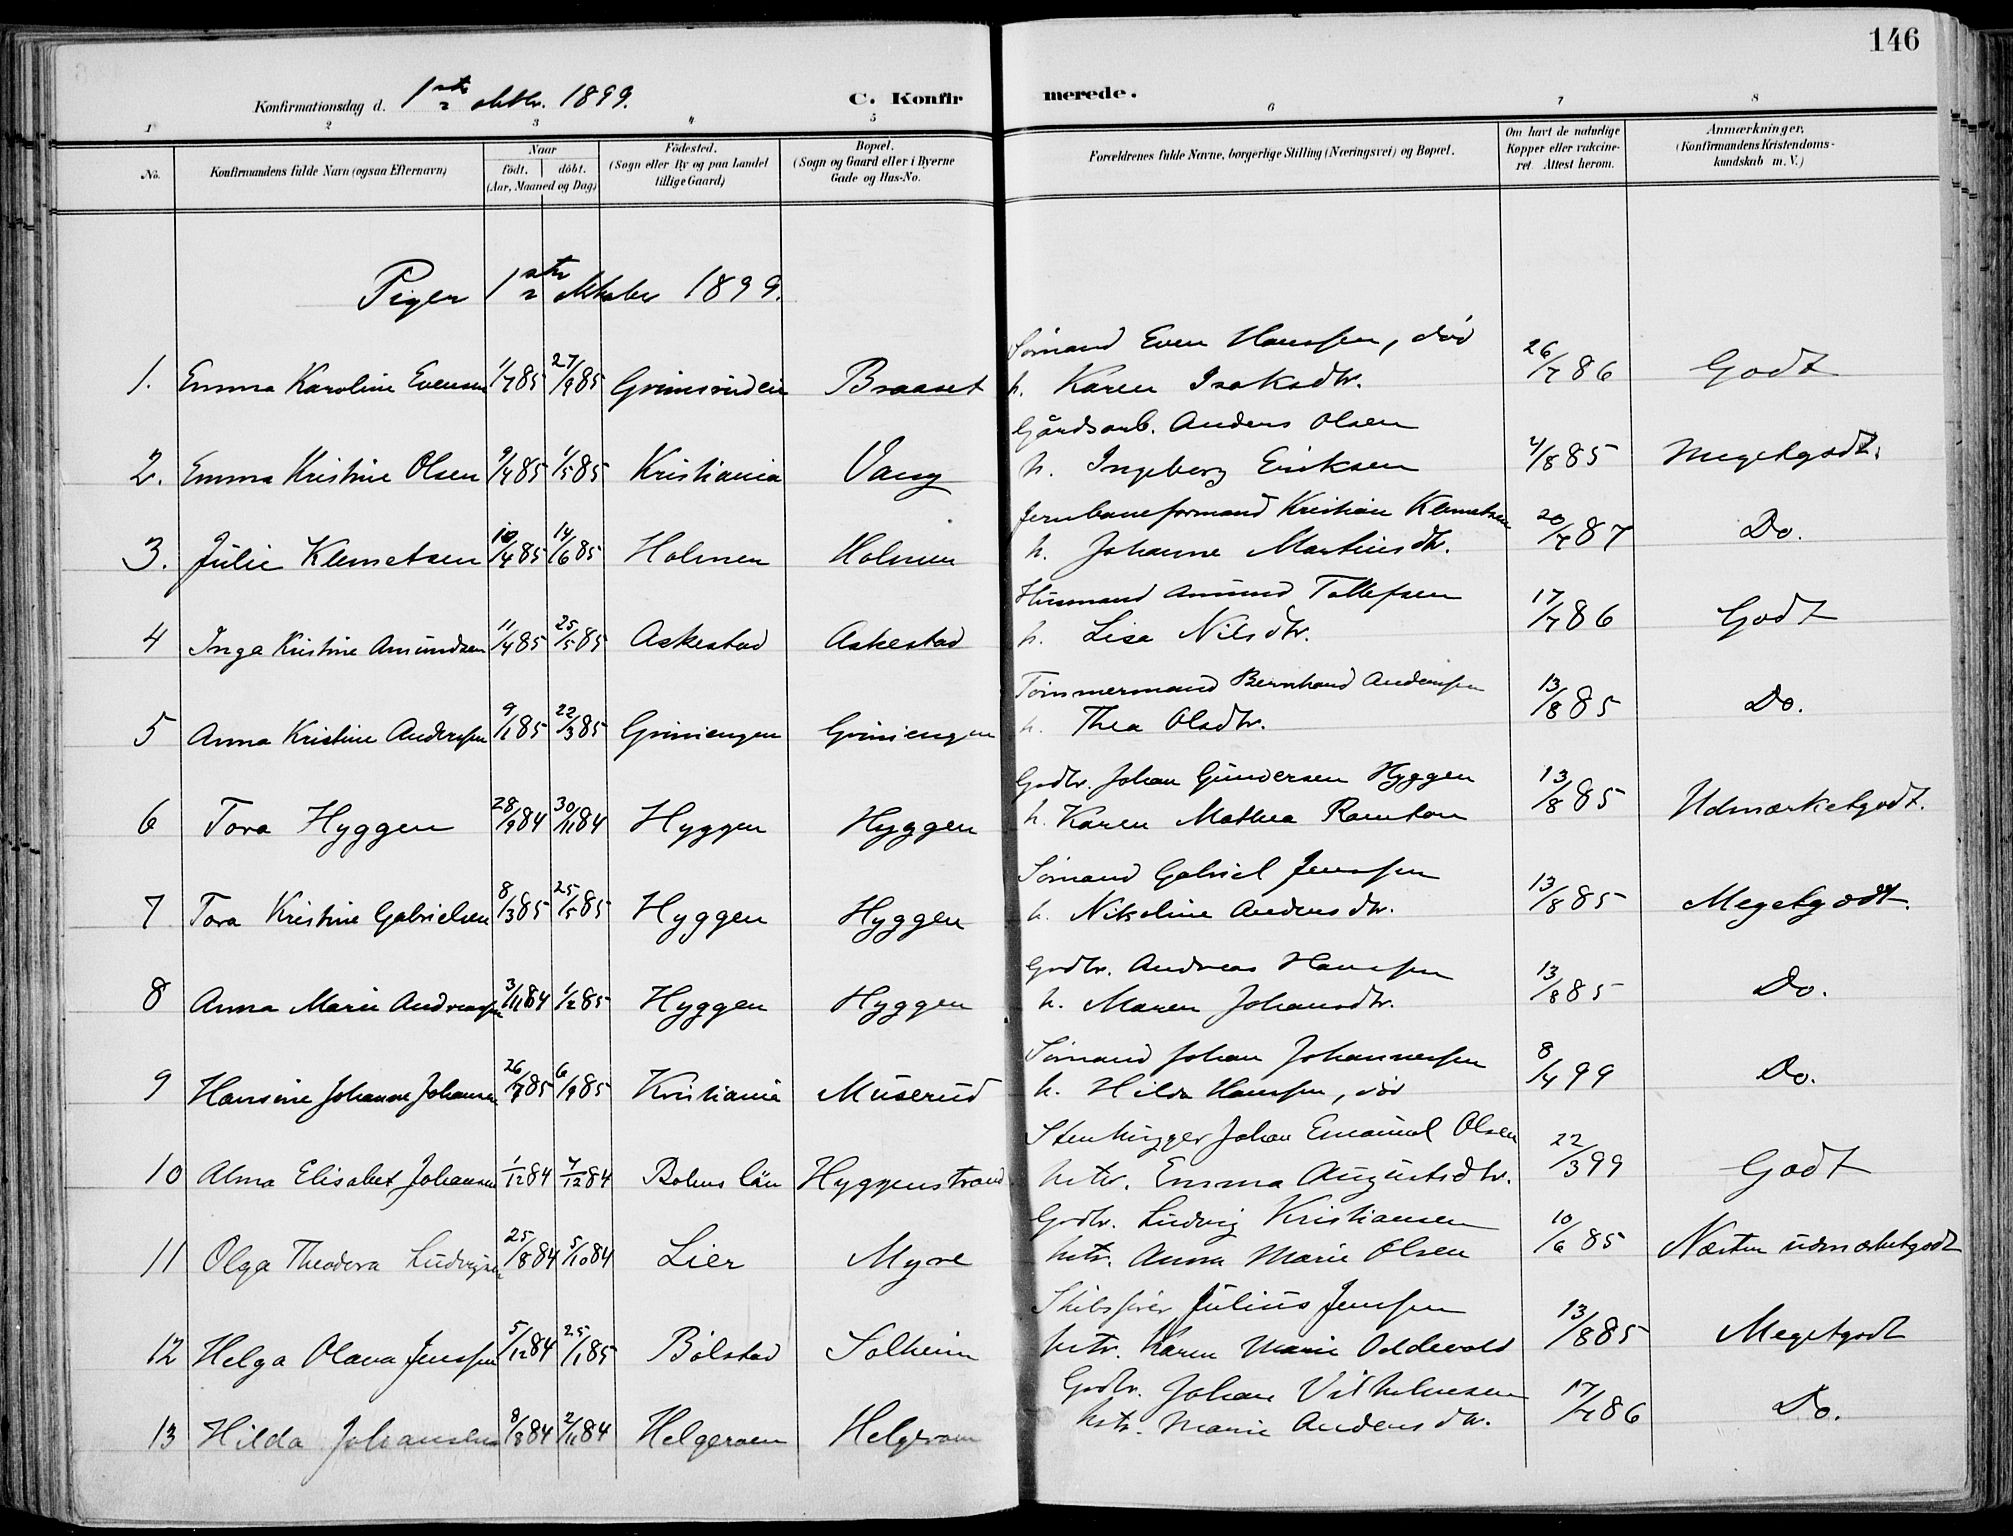 146
Konfirmationsdag d. 1ste oktbr. 1899. C. Konfirmerede.
1 2 3 4 5 6 7 8
No. Konfirmandens fulde Navn (ogsaa Efternavn) Naar født. døbt. (Aar, Maaned og Dag) Fødested. (Sogn eller By og paa Landet tillige Gaard) Bopæl. (Sogn og Gaard eller i Byerne Gade og Hus-No. Forældrenes fulde Navne, borgerlige Stilling (Næringsvei) og Bopæl. Om havt de naturlige Kopper eller vakcineret. Attest herom. Anmærkninger, (Konfirmandens Kristendomskundskab m. V.)
Piger 1ste oktober 1899.
Sømand Even Hanssen, død
1. Emma Karoline Evensen 1/7 85 27/9 85 Braaset h. Karen Isaksdtr. 26/7 86 Godt
Gårdsarb. Anders Olsen
2. Emma Kristine Olsen 9/4 85 1/5 85 Kristiania Vang h. Ingeborg Eriksen 4/8 85 Megetgodt.
Jernbaneformand Kristian Klemetsen
3. Julie Klemetsen 10/4 85 14/6 85 Holmen Holmen h. Johanne Martinsdtr. 20/7 87 Do.
Husmand Amund Tollefsen
4 Inga Kristine Amundsen 11/4 85 25/5 85 Askestad Askestad h. Lise Nilsdtr. 17/7 86 Godt
Tømmermand Bernhard Anderssen
5 Anna Kristine Anderssen 9/1 85 22/3 85 Griniengen Griniengen h. Thea Olsdtr. 13/8 85 Do.
Grdbr. Johan Gundersen Hyggen
6 Tora Hyggen 28/9 84 30/11 84 Hyggen Hyggen h. Karen Mathea Ramton 13/8 85 Udmærketgodt.
Sømand Gabriel Jenssen
7 Tora Kristine Gabrielsen 8/3 85 25/5 85 Hyggen Hyggen h. Nikoline Andersdtr. 13/8 85 Megetgodt.
Grdbr. Andreas Hanssen
8 Anna Marie Andreassen 3/11 84 1/2 85 Hyggen Hyggen h. Maren Johansdtr. 13/8 85 Do.
Sømand Johan Johannessen
9 Hansine Johanne Johansen 26/7 85 6/9 85 Kristiania Muserud h. Hilda Hanssen, død 8/4 99 Do.
Stenhugger Johan Emanuel Olsen
10 Alma Elisabet Johansen 1/12 84 7/12 84 Bohus län Hyggenstrand hstr. Emma Augustsdtr. 22/3 99 Godt
Grdbr. Ludvig Kristiansen
11 Olga Theodora Ludvigsen 25/8 84 5/10 84 Lier Myre hstr. Anna Marie Olsen 10/6 85 Næsten udmærketgodt
Skibsfører Julius Jenssen
12 Helga Olava Jenssen 5/12 84 25/1 85 Bølstad Solheim hstr. Karen Marie Oddevold 13/8 85 Megetgodt
Grdbr. Johan Vilhelmsen
13 Hilda Johansen 8/8 84 2/11 84 Helgeraen Helgeraen hstr. Marie Andersdtr. 17/7 86 Do.